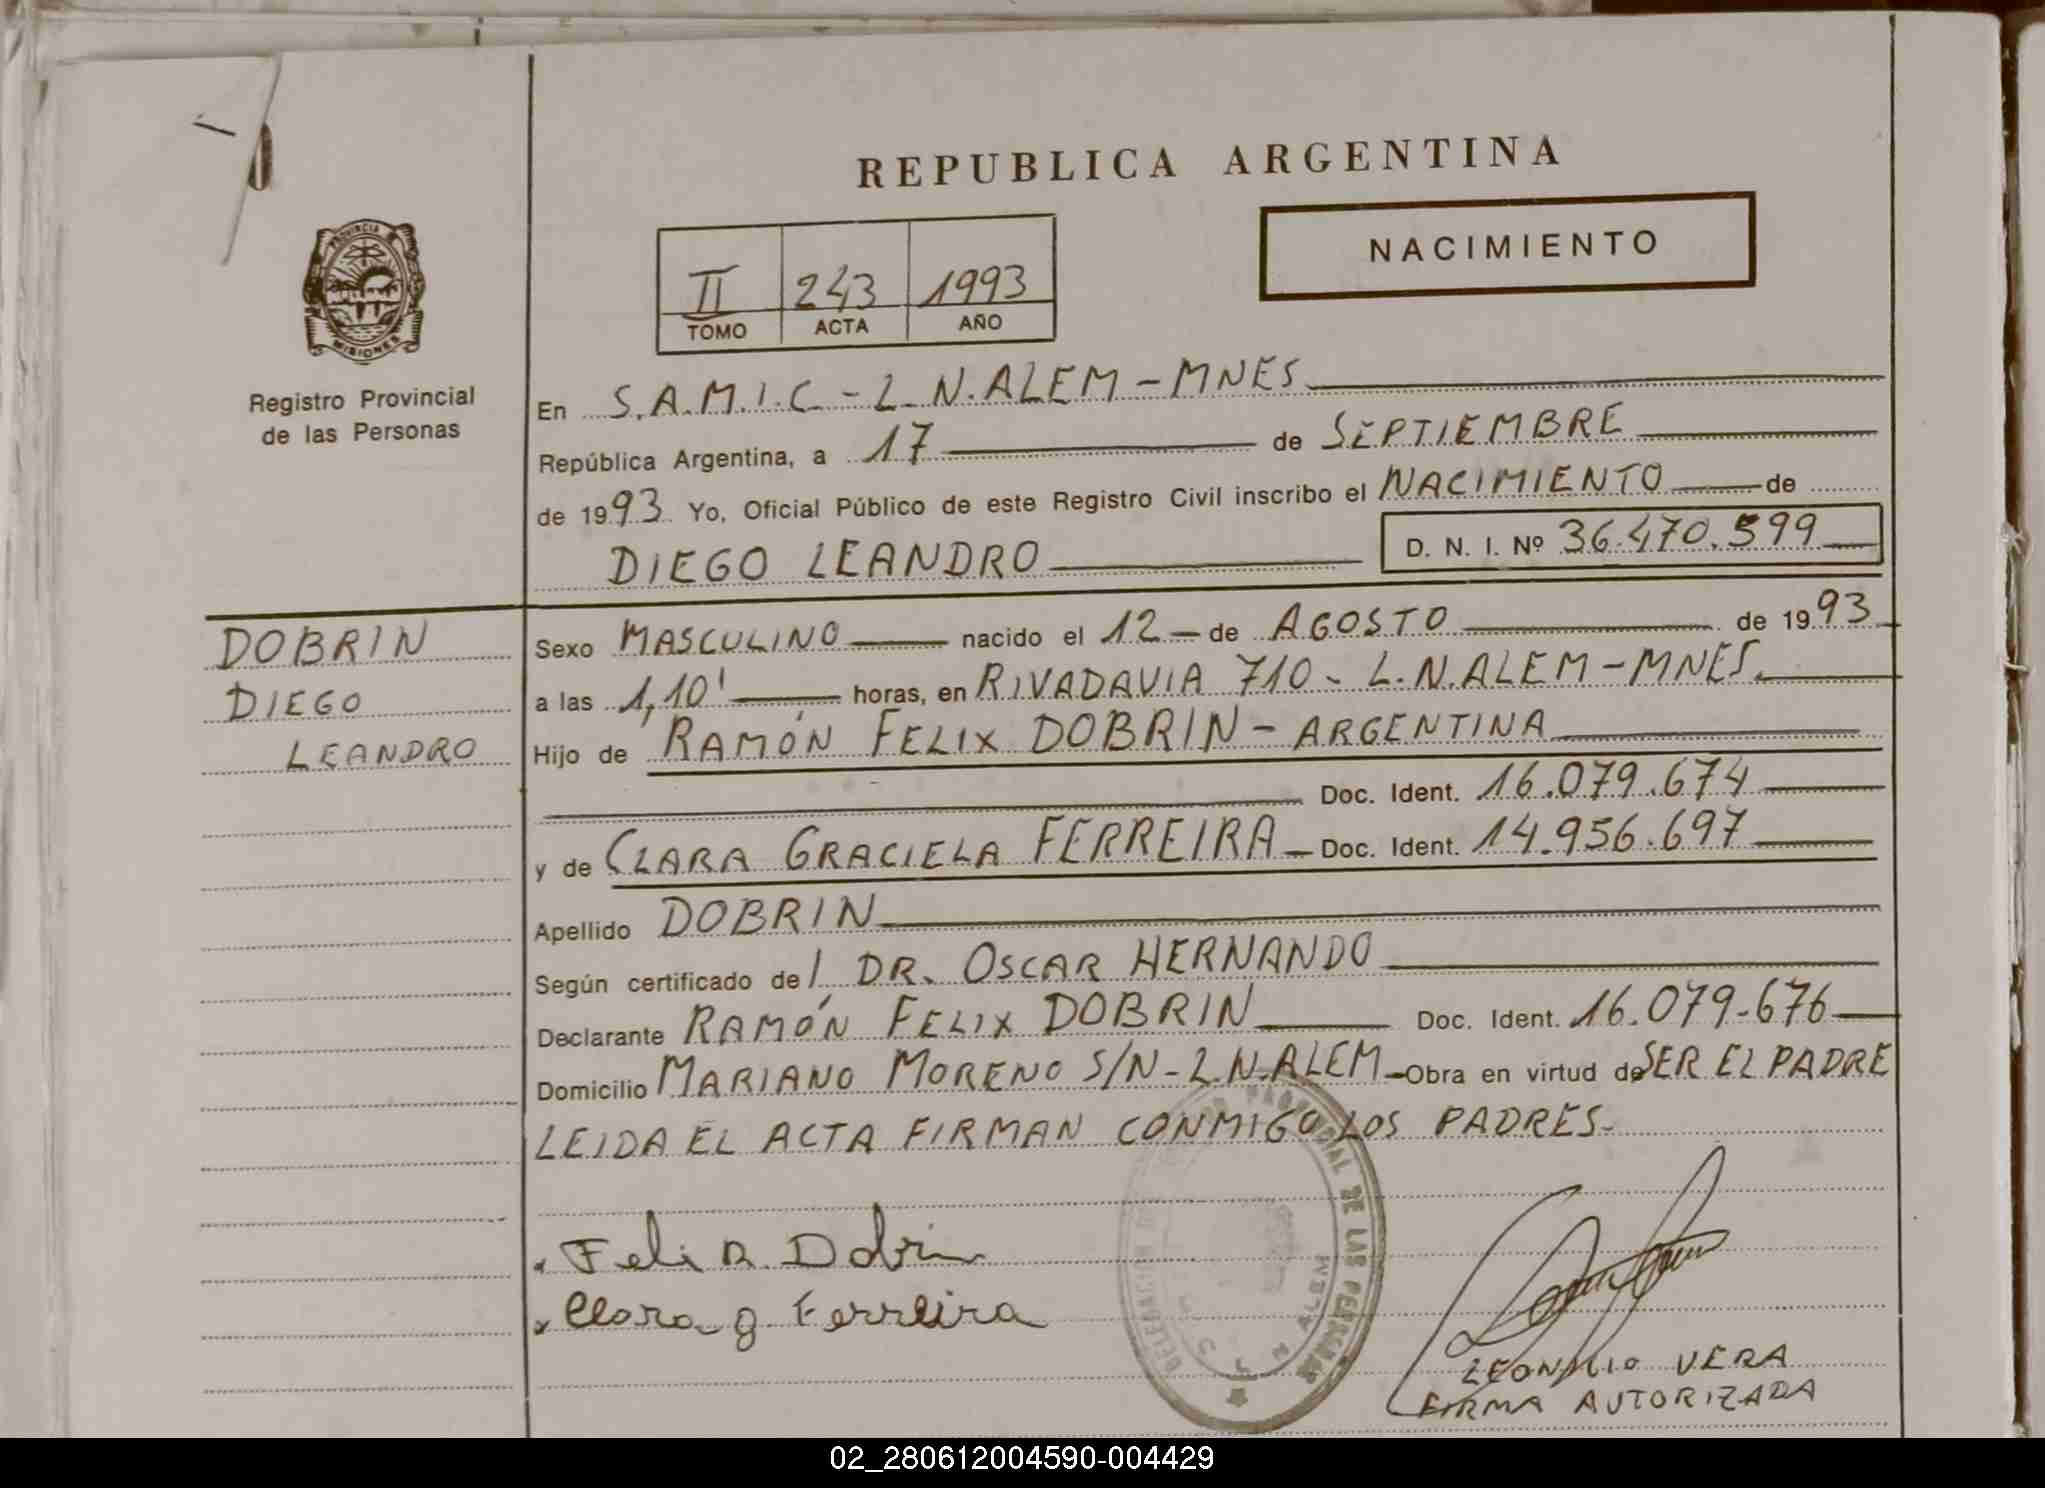 REPUBLICA ARGENTINA
NACIMIENTO
II 243 1993
TOMO ACTA AÑO
PROVINCIA DE
MISIONES
Registro Provincial
de las Personas
En S.A.M.I.C - L.N.ALEM - MNES
República Argentina, a 17 de SEPTIEMBRE
de 1993 Yo, Oficial Público de este Registro Civil inscribo el NACIMIENTO de
DIEGO LEANDRO D. N. I. Nº 36.470.599
DOBRIN
DIEGO
LEANDRO
Sexo MASCULINO nacido el 12 - de AGOSTO de 1993
a las 1,10' horas, en RIVADAVIA 710 - L.N.ALEM - MNES.
Hijo de RAMÓN FELIX DOBRIN - ARGENTINA
Doc. Ident. 16.079.674
y de CLARA GRACIELA FERREIRA - Doc. Ident. 14.956.697
Apellido DOBRIN
Según certificado de DR. OSCAR HERNANDO
Declarante RAMÓN FELIX DOBRIN Doc. Ident. 16.079-676
Domicilio MARIANO MORENO S/N - L.N.ALEM - Obra en virtud de SER EL PADRE
LEIDA EL ACTA FIRMAN CONMIGO LOS PADRES-
Feli R. Dobrin
Clara g. Ferreira
DE LAS PERSONAS
N ALEM
LEONILIO VERA
FIRMA AUTORIZADA
02_280612004590-004429